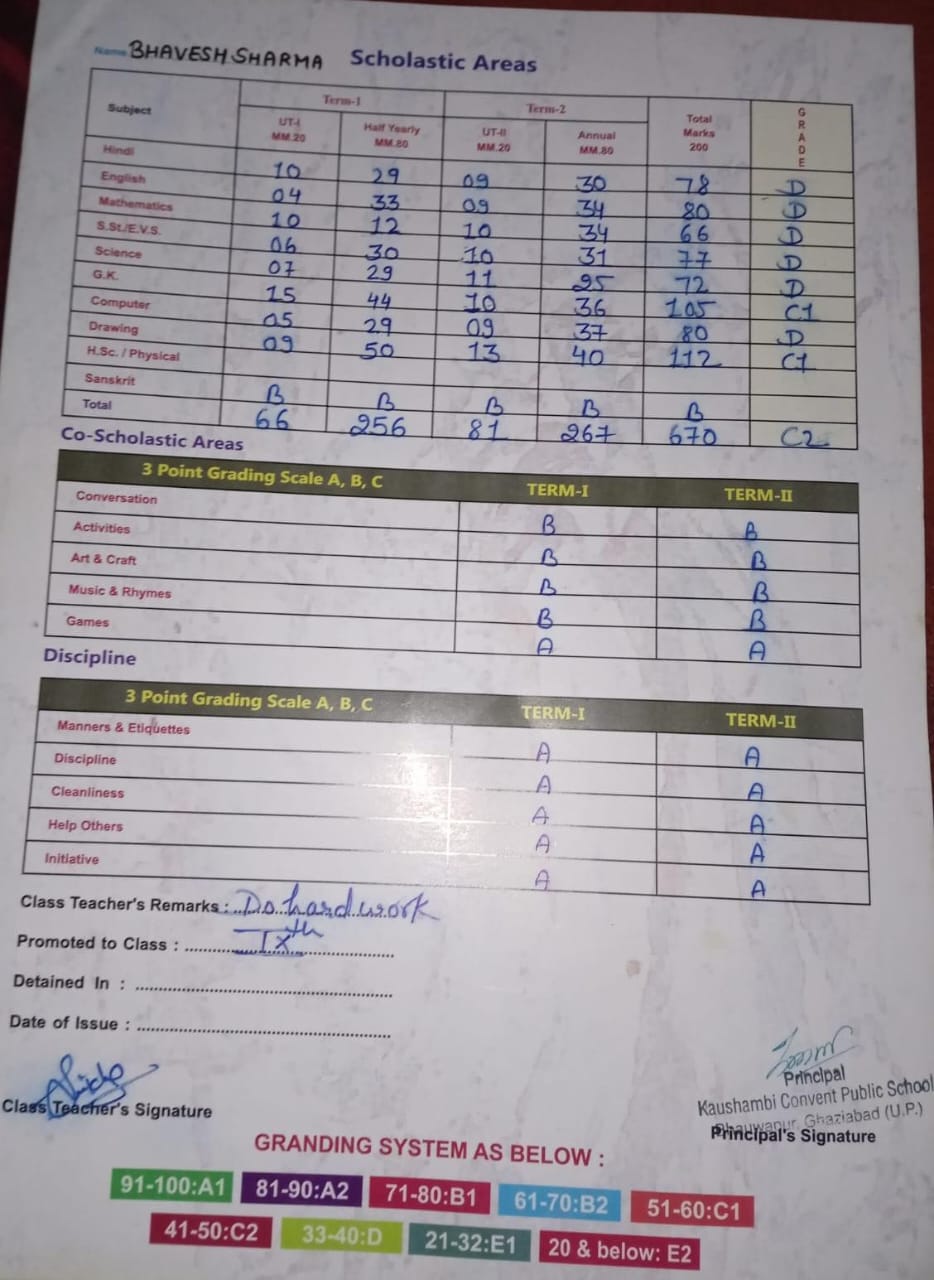 Name BHAVESH SHARMA Scholastic Areas
Subject Term-1 Term-2 Total Marks 200 GRADE
UT-I MM.20 Half Yearly MM.80 UT-II MM.20 Annual MM.80
Hindi 10 29 09 30 78 D
English 04 33 09 34 80 D
Mathematics 10 12 10 34 66 D
S.St./E.V.S. 06 30 10 31 77 D
Science 07 29 11 25 72 D
G.K. 15 44 10 36 105 C1
Computer 05 29 09 37 80 D
Drawing 09 50 13 40 112 C1
H.Sc. / Physical
Sanskrit B B B B B
Total 66 256 81 267 670 C2
Co-Scholastic Areas
3 Point Grading Scale A, B, C TERM-I TERM-II
Conversation B B
Activities B B
Art & Craft B B
Music & Rhymes B B
Games A A
Discipline
3 Point Grading Scale A, B, C TERM-I TERM-II
Manners & Etiquettes A A
Discipline A A
Cleanliness A A
Help Others A A
Initiative A A
Class Teacher's Remarks : Do hard work
Promoted to Class : IXth
Detained In :
Date of Issue :
Principal
Kaushambi Convent Public School
Ghaziabad (U.P.)
Class Teacher's Signature Principal's Signature
GRANDING SYSTEM AS BELOW :
91-100:A1 81-90:A2 71-80:B1 61-70:B2 51-60:C1
41-50:C2 33-40:D 21-32:E1 20 & below: E2